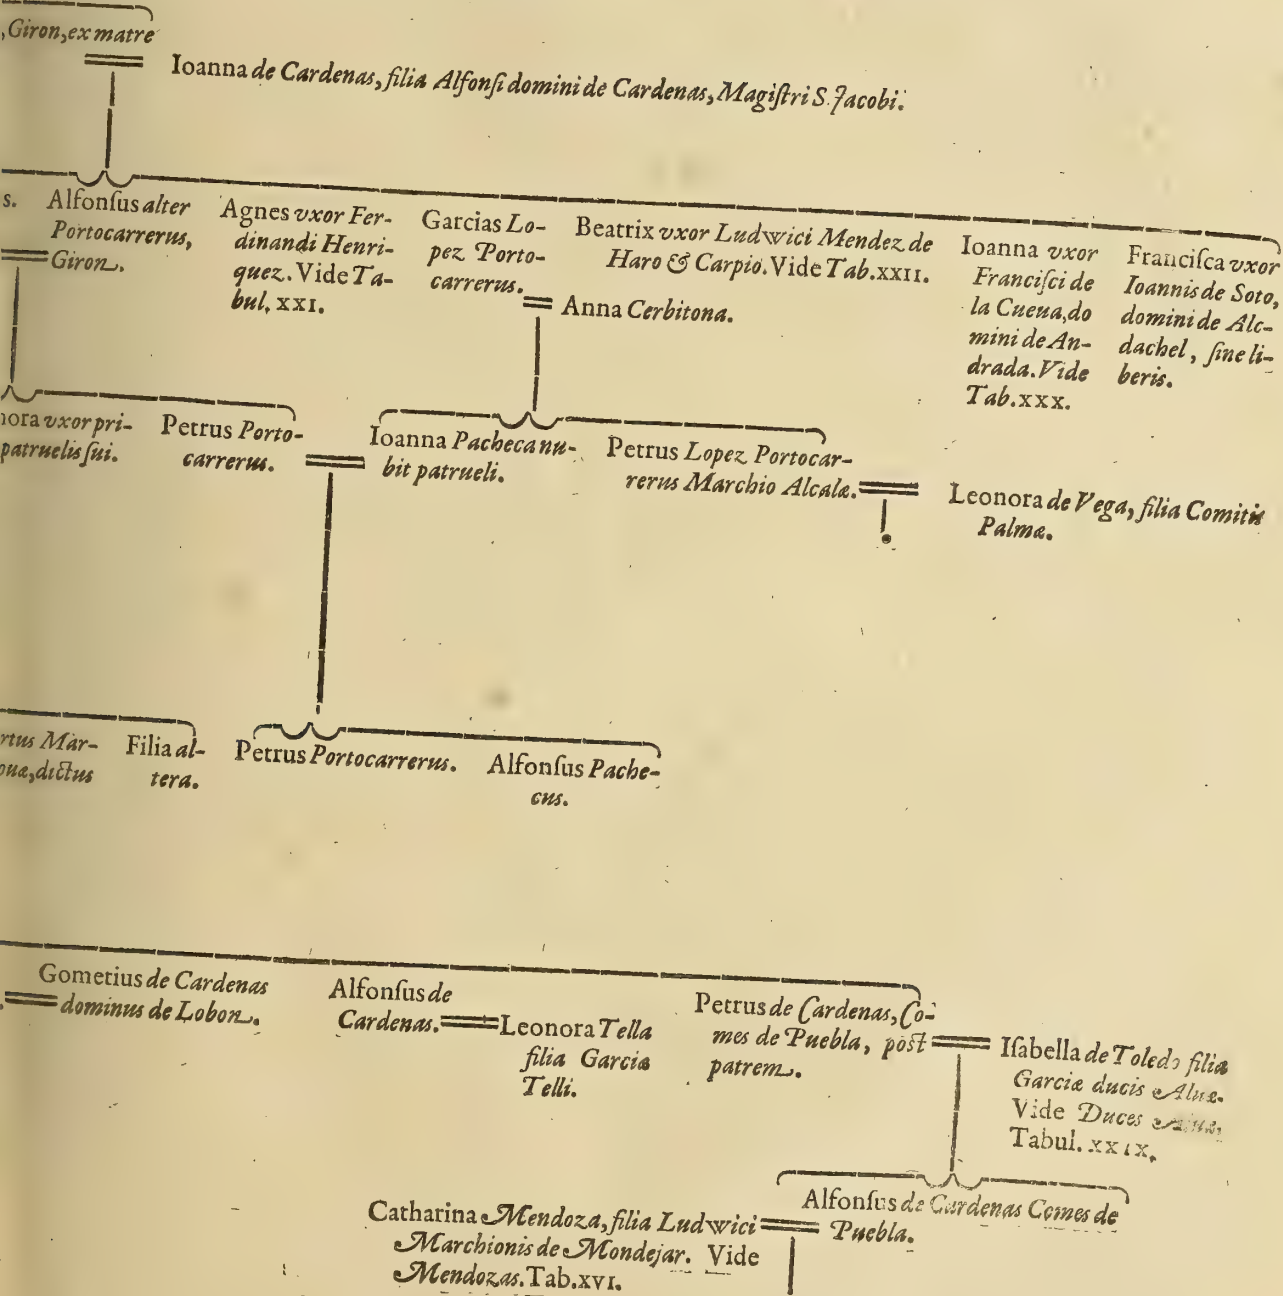 , Giron, ex matre
Ioanna de Cardenas, filia Alfonſi domini de Cardenas, Magiſtri S. Jacobi.
s.
Alfonſus alter
Portocarrerus,
Giron.
Agnes vxor Fer-
dinandi Henri-
quez. Vide Ta-
bul. XXI.
Garcias Lo-
pez Porto-
carrerus.
Anna Cerbitona.
Beatrix vxor Ludwici Mendez de
Haro & Carpio. Vide Tab. XXII.
Ioanna vxor
Franciſci de
la Cueua, do
mini de An-
drada. Vide
Tab. XXX.
Franciſca vxor
Ioannis de Soto,
domini de Alc-
dachel, ſine li-
beris.
nora vxor pri-
patruelis ſui.
Petrus Porto-
carrerus.
Ioanna Pacheca nu-
bit patrueli.
Petrus Lopez Portocar-
rerus Marchio Alcalæ.
Leonora de Vega, filia Comitis
Palmæ.
rtus Mar-
ouæ, dictus
Filia al-
tera.
Petrus Portocarrerus.
Alfonſus Pache-
cus.
Gometius de Cardenas
dominus de Lobon.
Alfonſus de
Cardenas.
Leonora Tella
filia Garciæ
Telli.
Petrus de Cardenas, Co-
mes de Puebla, poſt
patrem.
Iſabella de Toledo filia
Garciæ ducis Aluæ.
Vide Duces
Tabul. XXIX.
Alfonſus de Cardenas Comes de
Puebla.
Catharina Mendoza, filia Ludwici
Marchionis de Mondejar. Vide
Mendozas. Tab. XVI.